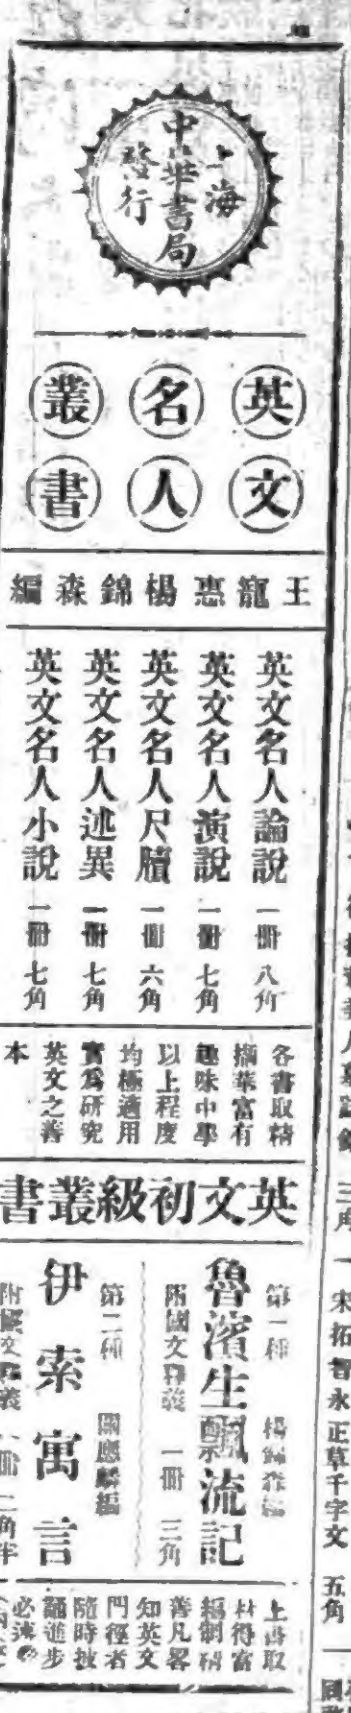 上海
中華書局
發行
英文
名人
叢書
王寵惠楊錦森編
英文名人論說 一冊 八角
英文名人演說 一冊 七角
英文名人尺牘 一冊 六角
英文名人述異 一冊 七角
英文名人小說 一冊 七角
各書取精
擷華富有
趣味中學
以上程度
均極適用
實爲研究
英文之善
本
英文初級叢書
第一種 楊錦森編
魯濱生飄流記
附國文釋義 一冊 三角
第二種 編
伊索寓言
附國文釋義 一冊 二角半
上書取
材得富
編制精
善凡畧
知英文
門徑者
隨時披
誦進步
必速
三角
宋拓智永正草千字文 五角